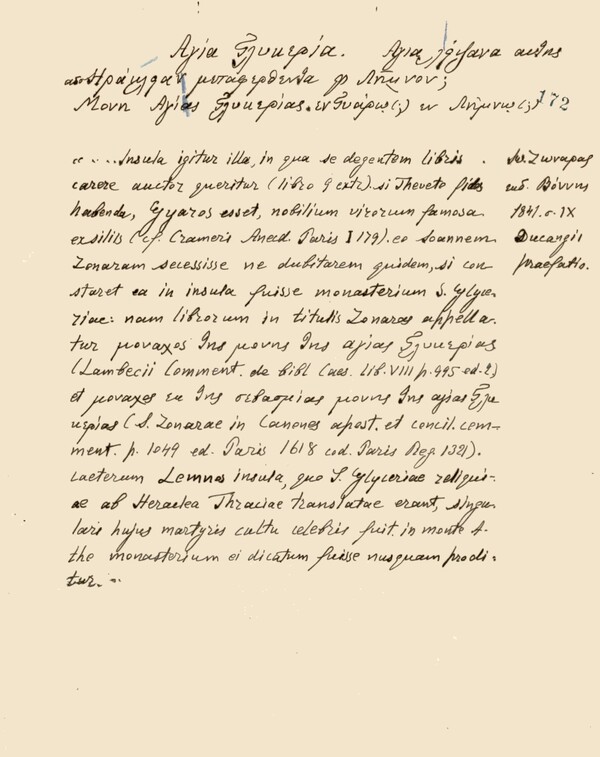 Αγία Γλυκερία. Αγια λείψανα αυτης
απο Ηράκλειαν μεταφερθεντα εις Λῆμνον;
Μονη Αγίας Γλυκερίας εν Γυάρω(;) εν Λήμνω(;) 172
«....Insula igitur illa, in qua se degentem libris
carere auctor queritur (libro 9 extr.) si Theveto fides
habenda, Gyaros esset, nobilium virorum famosa
exsiliis (cf. Crameris Anecd. Paris I 179). eo Ioannem
Zonaram secessisse ne dubitarem quidem, si con
staret ea in insula fuisse monasterium S. Glyce-
riae: nam librorum in titulis Zonaras appella-
tur μοναχος της μονης της αγίας Γλυκερίας
(Lambecii Comment. de bibl Caes. lib. VIII p. 995 ed. 2)
et μοναχος εκ της σεβασμίας μονης της αγίας Γλυ
κερίας (S. Zonarae in Canones apost. et concil. com-
ment. p. 1049 ed. Paris 1618 cod. Paris Reg 1321).
Caeterum Lemnos insula, quo S. Glyceriae reliqui-
ae ab Heraclea Thraciae translatae erant, singu
laris hujus martyris cultu celebris fuit. in monte A-
tho monasterium ei dicatum fuisse nusquam prodi-
tur. -»
Ιω. Ζωναρας
εκδ. Βόννης
1841. σ. IX
Ducangii
praefatio.